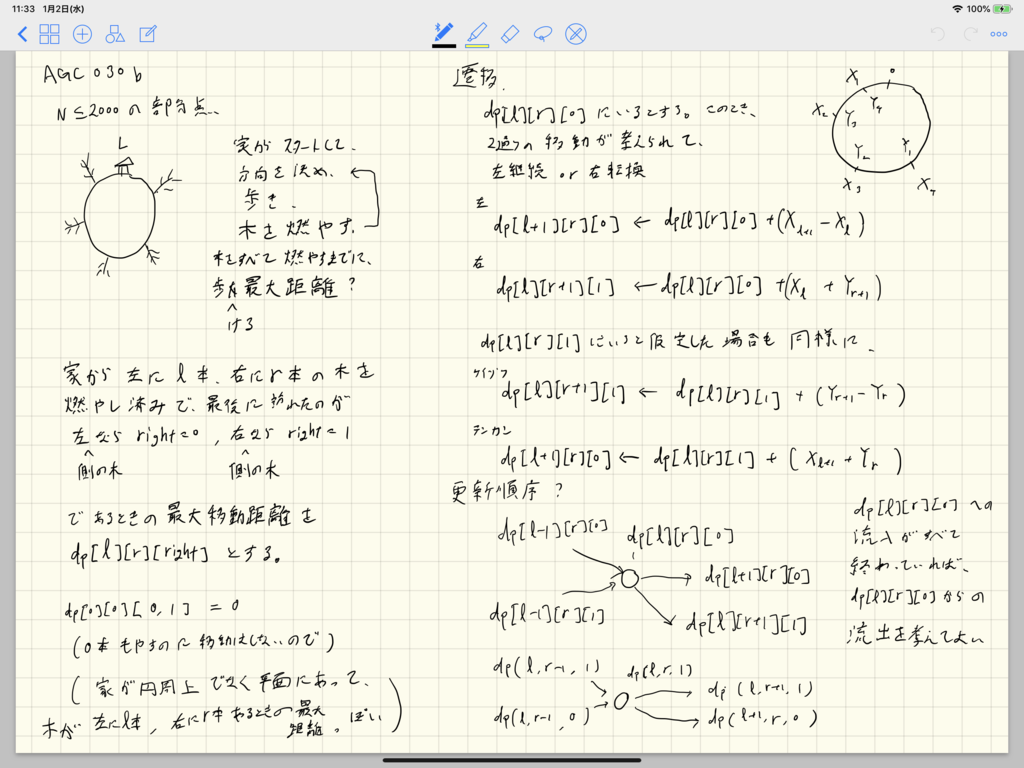 11:33 1月2日(水)
100%
AGC 030 b
N≤2000 の 部分点、
L
家が スタートして、
方向を 決め、
歩き、
木を 燃やす。
木をすべて 燃やすまでに、
歩ける 最大距離?
家から 左に l 本、右に r 本 の 木を
燃やし済みで、最後に 訪れたのが
左なら right=0 , 右なら right=1
側の木 側の木
であるときの 最大移動距離を
dp[l][r][right] とする。
dp[0][0][0,1] = 0
(0本 もやすのに 移動はしないので)
(家が 円周上 でなく 平面にあって、
木が 左に l 本, 右に r 本 あるときの 最大
距離。 ぽい)
遷移
dp[l][r][0] にいるとする。このとき、
2通りの 移動が 考えられて、
左継続 or 右転換
左
dp[l+1][r][0] ← dp[l][r][0] +(Xl+1 - Xl)
右
dp[l][r+1][1] ← dp[l][r][0] +(Xl + Yr+1)
dp[l][r][1] にいると 仮定した 場合も 同様に、
ケイゾク
dp[l][r+1][1] ← dp[l][r][1] + (Yr+1 - Yr)
テンカン
dp[l+1][r][0] ← dp[l][r][1] + (Xl+1 + Yr)
更新順序?
dp[l-1][r][0]
dp[l][r][0]
dp[l+1][r][0]
dp[l-1][r][1]
dp[l][r+1][1]
dp(l, r-1, 1)
dp(l, r, 1)
dp(l, r+1, 1)
dp(l, r-1, 0)
dp(l+1, r, 0)
dp[l][r][0] への
流入がすべて
終わっていれば、
dp[l][r][0]からの
流出を考えてよい
0
X1
X2
X3
X4
Y4
Y3
Y2
Y1